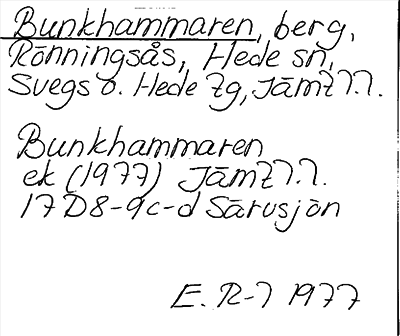 Bunkhammaren, berg,
Rönningsås, Hede sn,
Svegs o. Hede tg, Jämtl.l.
Bunkhammaren
ek (1977) Jämtl.l.
17D8-9c-d Särvsjön
E. R-l 1977